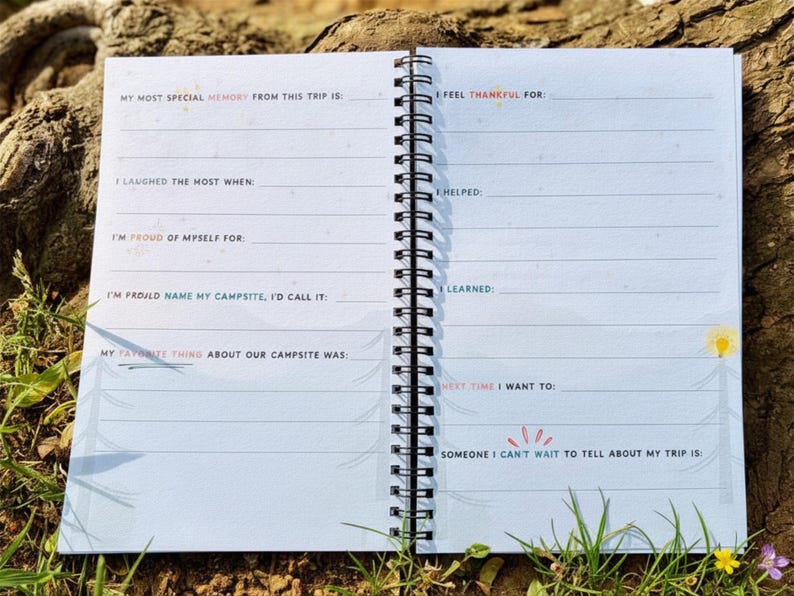 MY MOST SPECIAL MEMORY FROM THIS TRIP IS:
I LAUGHED THE MOST WHEN:
I'M PROUD OF MYSELF FOR:
I'M PROULD NAME MY CAMPSITE, I'D CALL IT:
MY FAVORITE THING ABOUT OUR CAMPSITE WAS:
I FEEL THANKFUL FOR:
I HELPED:
I LEARNED:
NEXT TIME I WANT TO:
SOMEONE I CAN'T WAIT TO TELL ABOUT MY TRIP IS: